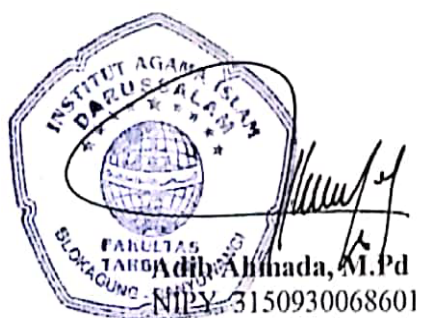 INSTITUT AGAMA ISLAM
DARUSSALAM
FAKULTAS
BLOKAGUNG BANYUWANGI
Adib Ahmada, M.Pd
NIPY. 3150930068601